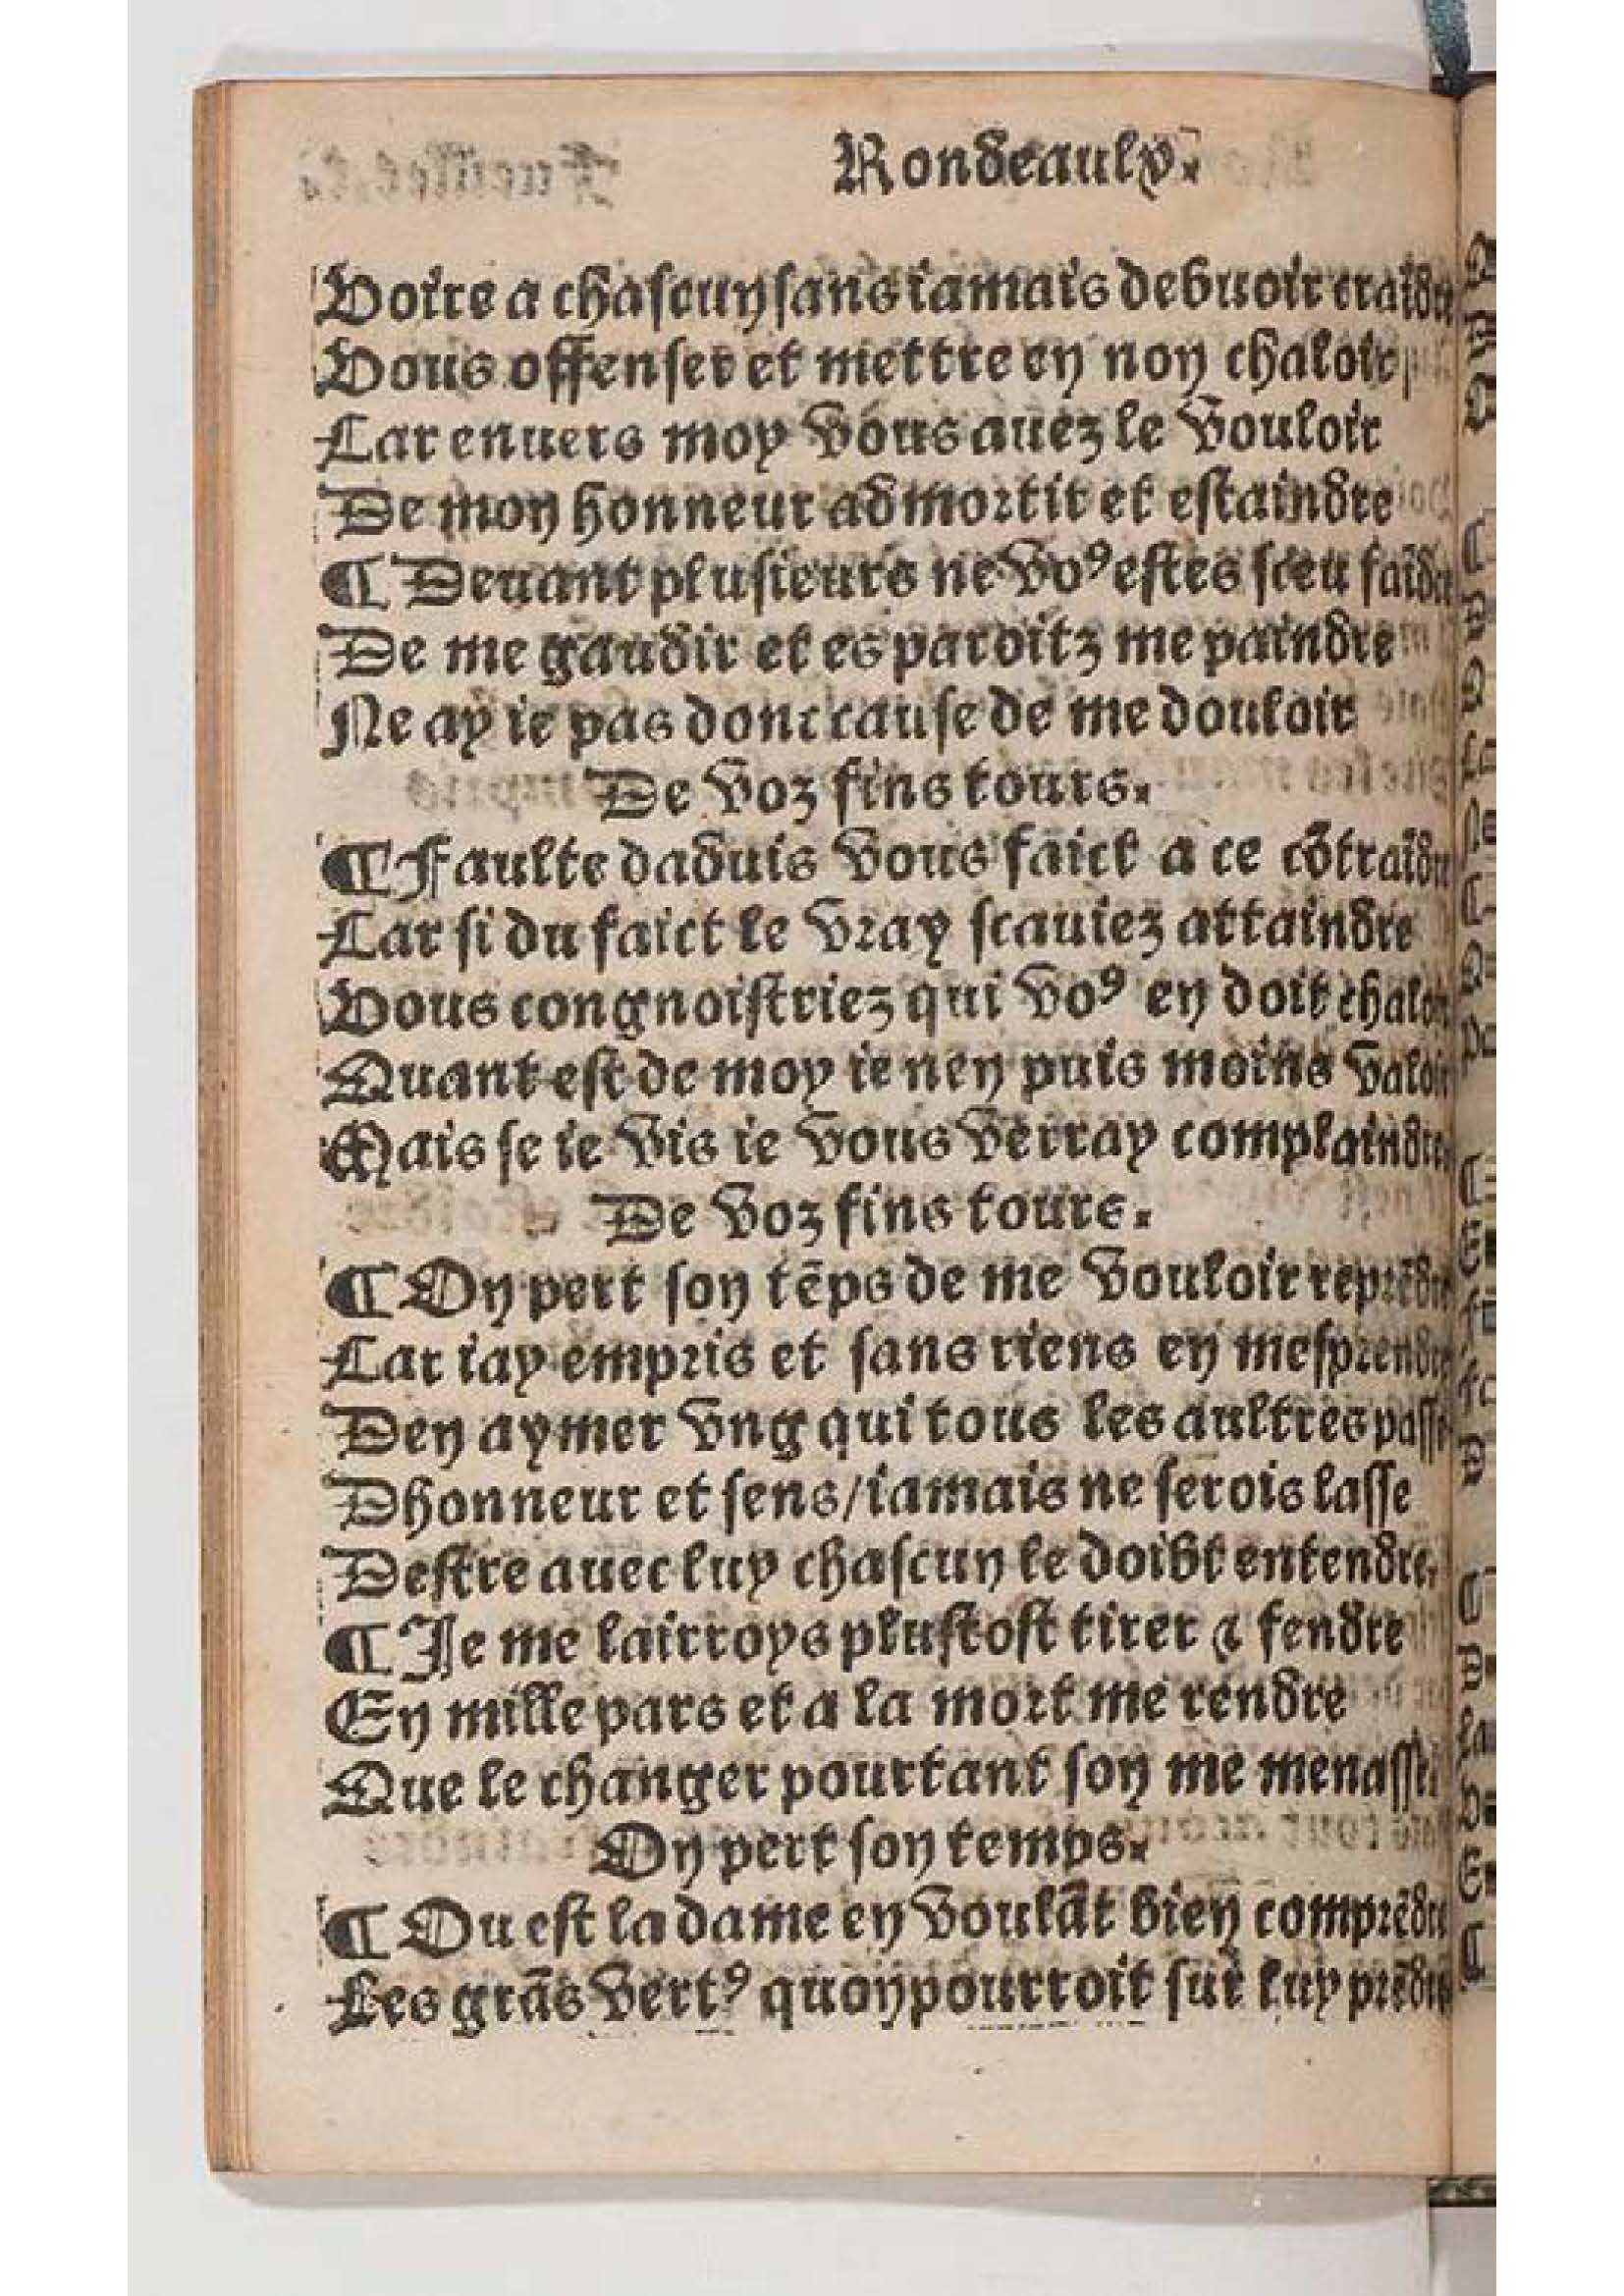 Rondeaulx.
Voire a chascun sans iamais debuoir craĩdre
Vous offenser et mettre en non chaloir
Car enuers moy vous auez le vouloir
De mon honneur admortir et estaindre
¶ Deuant plusieurs ne voꝰ estes sceu faĩdre
De me gaudir et es paroitz me paindre
Ne ay ie pas donc cause de me douloir
De voz fins tours.
¶ Faulte daduis vous faict a ce cõtraĩdre
Car si du faict le vray scauiez attaindre
Vous congnoistriez qui voꝰ en doit chaloir
Quant est de moy ie nen puis moins valoir
Mais se ie vis ie vous verray complaindre.
De voz fins tours.
¶ On pert son tẽps de me vouloir reprẽdre
Car iay empris et sans riens en mesprendre
Den aymer vng qui tous les aultres passe
Dhonneur et sens/iamais ne serois lasse
Destre auec luy chascun le doibt entendre.
¶ Je me lairroys plustost tirer ⁊ fendre
En mille pars et a la mort me rendre
Que le changer pourtant son me menasse
On pert son temps.
¶ Ou est la dame en voulãt bien comprẽdre
Les grãs vertꝰ quon pourroit sur luy prẽdre